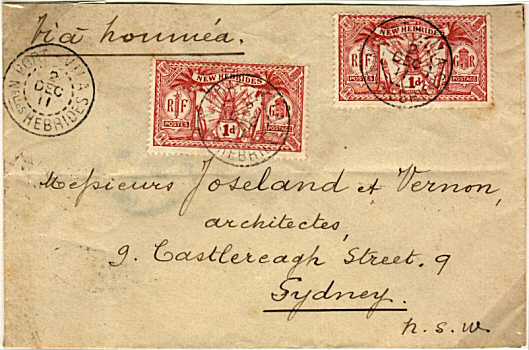 Viâ Nouméa.
PORT VILA
2
DEC
11
NEW HEBRIDES
NEW HEBRIDES
RF
GR
POSTES
1d
POSTAGE
NEW HEBRIDES
RF
GR
POSTES
1d
POSTAGE
2
DEC
11
Messieurs Joseland et Vernon,
architectes,
9. Castlereagh Street. 9
Sydney.
N. S. W.